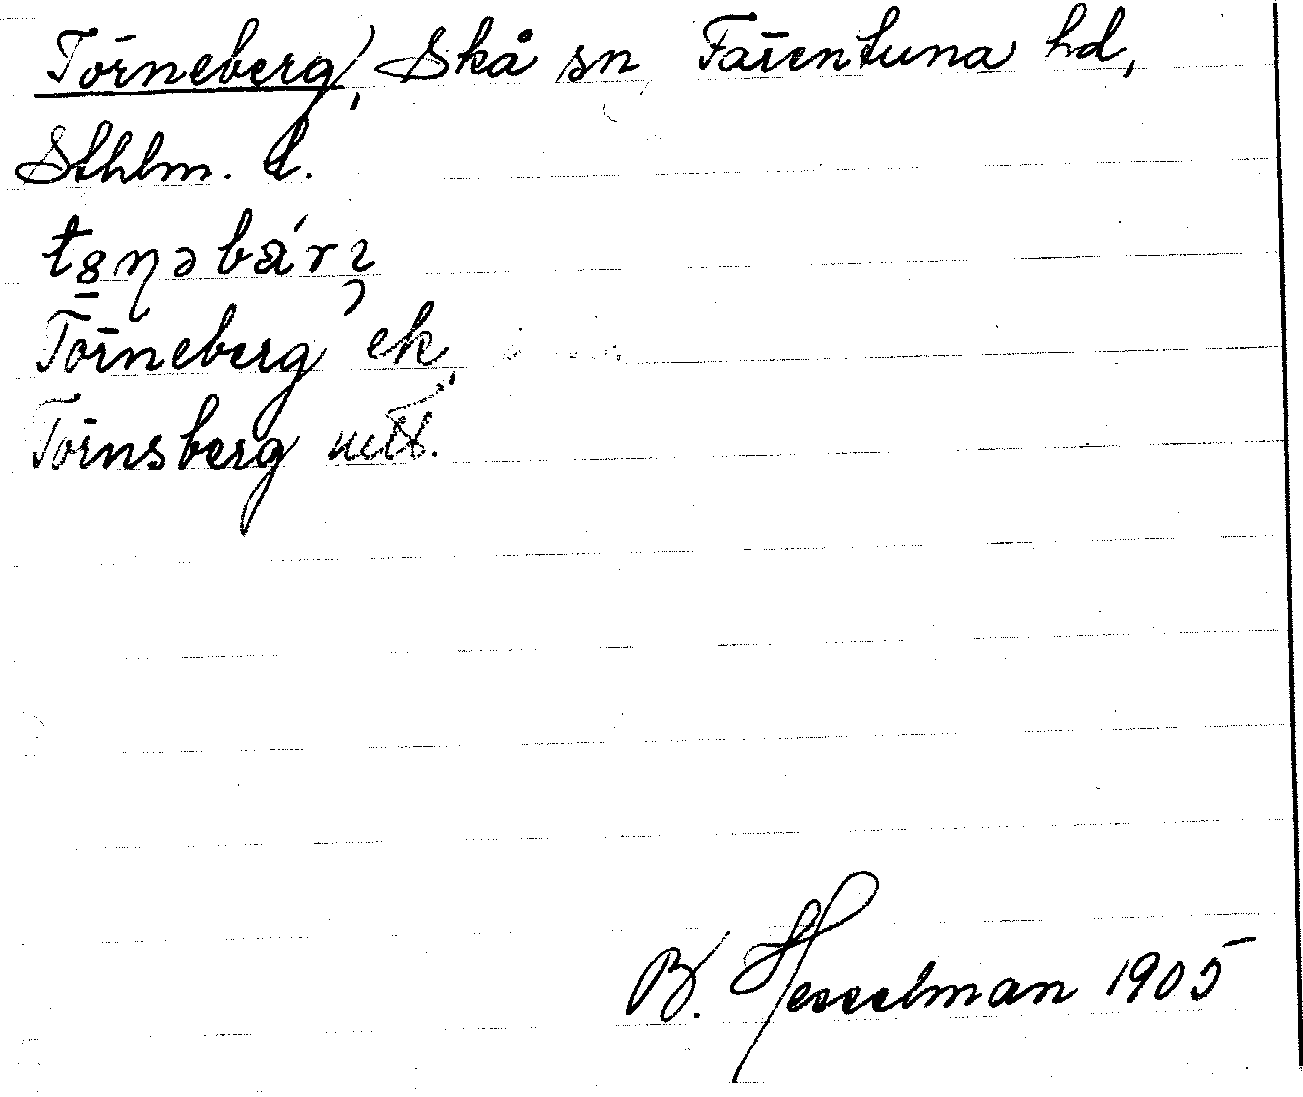 Törneberg, Skå sn Färentuna hd,
Sthlm. l.
Törneberg ek,
Törnsberg
B. Hesselman 1905